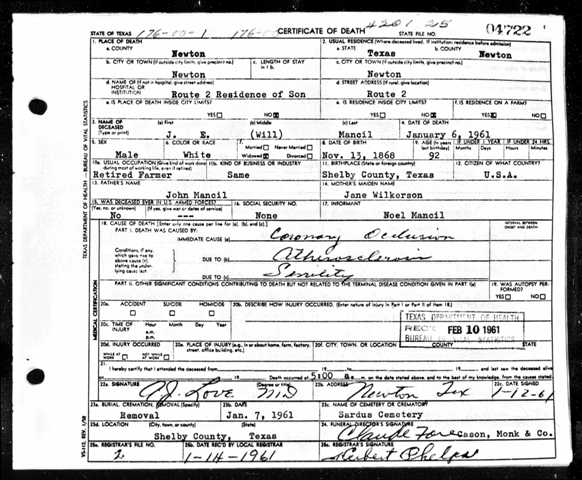 4201 215
STATE OF TEXAS 176-00-1 CERTIFICATE OF DEATH STATE FILE NO. 04722
1. PLACE OF DEATH 2. USUAL RESIDENCE (Where deceased lived. If institution: residence before admission)
a. COUNTY Newton a. STATE Texas b. COUNTY Newton
b. CITY OR TOWN (If outside city limits, give precinct no.) Newton c. LENGTH OF STAY in 1 b. c. CITY OR TOWN (If outside city limits, give precinct no.) Newton
d. NAME OF (If not in hospital, give street address) HOSPITAL OR INSTITUTION Route 2 Residence of Son d. STREET ADDRESS (If rural, give location) Route 2
e. IS PLACE OF DEATH INSIDE CITY LIMITS? YES NO e. IS RESIDENCE INSIDE CITY LIMITS? YES NO f. IS RESIDENCE ON A FARM? YES NO
3. NAME OF DECEASED (Type or print) (a) First J. E. (b) Middle (Will) (c) Last Mancil 4. DATE OF DEATH January 6, 1961
5. SEX Male 6. COLOR OR RACE White 7. Married Never Married Widowed Divorced 8. DATE OF BIRTH Nov. 13, 1868 9. AGE (In years last birthday) 92 IF UNDER 1 YEAR Months Days IF UNDER 24 HRS. Hours Min.
10a. USUAL OCCUPATION (Give kind of work done during most of working life, even if retired) Retired Farmer 10b. KIND OF BUSINESS OR INDUSTRY Same 11. BIRTHPLACE (State or foreign country) Shelby County, Texas 12. CITIZEN OF WHAT COUNTRY? U.S.A.
13. FATHER'S NAME John Mancil 14. MOTHER'S MAIDEN NAME Jane Wilkerson
15. WAS DECEASED EVER IN U.S. ARMED FORCES? (Yes, no, or unknown) (If yes, give war or dates of service) No --- 16. SOCIAL SECURITY NO. None 17. INFORMANT Noel Mancil
18. CAUSE OF DEATH (Enter only one cause per line for (a), (b), and (c).) INTERVAL BETWEEN ONSET AND DEATH
PART I. DEATH WAS CAUSED BY:
IMMEDIATE CAUSE (a) Coronary Occlusion
Conditions, if any, which gave rise to above cause (a), stating the underlying cause last.
DUE TO (b) Athirosclerosis
DUE TO (c) Senility
PART II. OTHER SIGNIFICANT CONDITIONS CONTRIBUTING TO DEATH BUT NOT RELATED TO THE TERMINAL DISEASE CONDITION GIVEN IN PART I(a) 19. WAS AUTOPSY PERFORMED? YES NO
20a. ACCIDENT SUICIDE HOMICIDE 20b. DESCRIBE HOW INJURY OCCURRED. (Enter nature of injury in Part I or Part II of Item 18.)
20c. TIME OF INJURY Hour Month Day Year a.m. p.m.
TEXAS DEPARTMENT OF HEALTH
REC'D FEB 10 1961
BUREAU OF VITAL STATISTICS
20d. INJURY OCCURRED WHILE AT WORK NOT WHILE AT WORK 20e. PLACE OF INJURY (e.g. in or about home, farm, factory, street, office building, etc.) 20f. CITY, TOWN, OR LOCATION COUNTY STATE
21. I hereby certify that I attended the deceased from
Death occurred at 5:00 m. on the date stated above, and to the best of my knowledge, from the causes stated.
22a. SIGNATURE Love MD (Degree or title) 22b. ADDRESS Newton Tex 22c. DATE SIGNED 1-12-61
23a. BURIAL, CREMATION, REMOVAL (Specify) Removal 23b. DATE Jan. 7, 1961 23c. NAME OF CEMETERY OR CREMATORY Sardus Cemetery
23d. LOCATION (City, town, or county) (State) Shelby County, Texas 24. FUNERAL DIRECTOR'S SIGNATURE Claude Monk & Co.
25a. REGISTRAR'S FILE NO. 2 25b. DATE REC'D BY LOCAL REGISTRAR 1-14-1961 25c. REGISTRAR'S SIGNATURE Herbert Phelps
TEXAS DEPARTMENT OF HEALTH BUREAU OF VITAL STATISTICS
MEDICAL CERTIFICATION